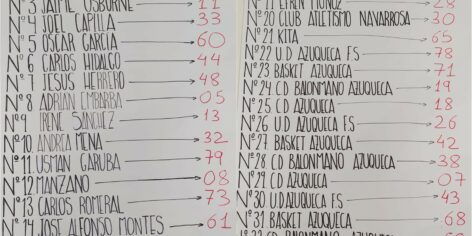 Nº3 JAIME OSBORNE → 11
Nº4 JOEL CAPILLA → 33
Nº5 OSCAR GARCÍA → 60
Nº6 CARLOS HIDALGO → 44
Nº7 JESUS HERRERO → 48
Nº8 ADRIAN EMBARBA → 05
Nº9 IRENE SÁNCHEZ → 13
Nº10 ANDREA MENA → 32
Nº11 USMAN GARUBA → 79
Nº12 MANZANO → 08
Nº13 CARLOS ROMERAL → 73
Nº14 JOSE ALFONSO MONTES → 61
EFREN MUÑOZ → 28
Nº20 CLUB ATLETISMO NAVARROSA → 30
Nº21 KITA → 65
Nº22 U D AZUQUECA F.S → 78
Nº23 BASKET AZUQUECA → 71
Nº24 C D BALONMANO AZUQUECA → 19
Nº25 CD AZUQUECA → 18
Nº26 U D AZUQUECA F.S → 26
Nº27 BASKET AZUQUECA → 42
Nº28 CD BALONMANO AZUQUECA → 38
Nº29 CD AZUQUECA → 07
Nº30 UD AZUQUECA F.S → 43
Nº31 BASKET AZUQUECA → 68
CD BALONMANO AZUQUECA